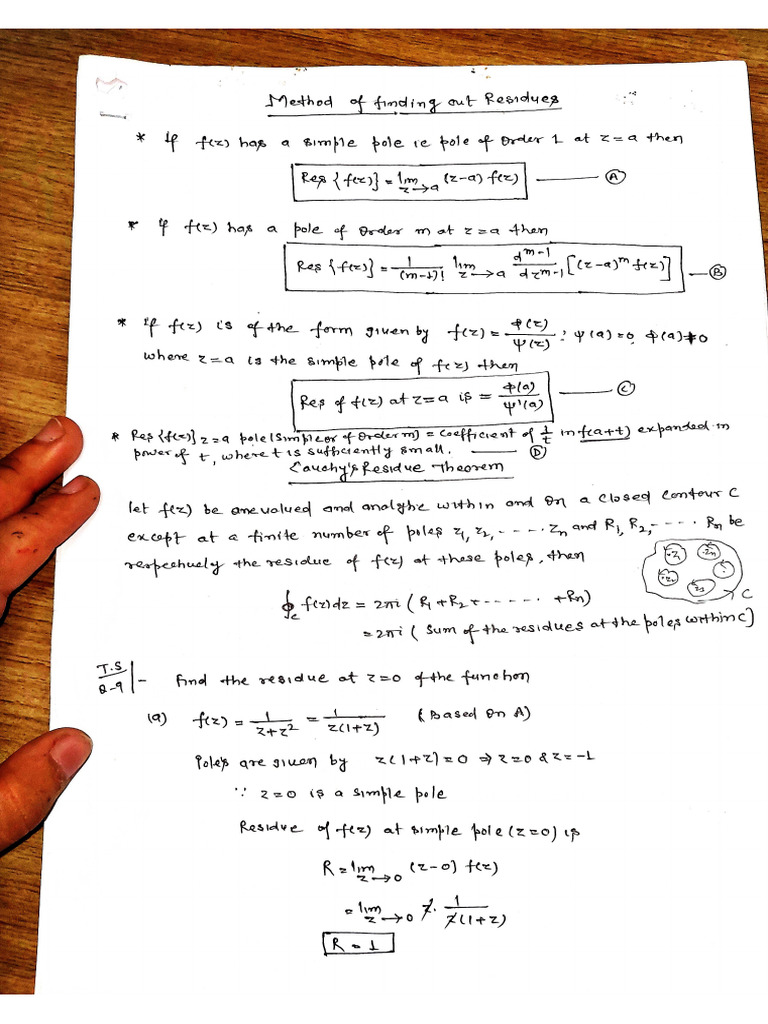 Method of finding out Residues
* If f(z) has a simple pole ie pole of order 1 at z=a then
Res{f(z)} = lim z→a (z-a) f(z) —— (A)
* If f(z) has a pole of order m at z=a then
Res{f(z)} = 1/(m-1)! lim z→a d^m-1/dz^m-1 [(z-a)^m f(z)] — (B)
* If f(z) is of the form given by f(z) = φ(z)/ψ(z) ; ψ(a)=0, φ(a)≠0
where z=a is the simple pole of f(z) then
Res of f(z) at z=a is = φ(a)/ψ'(a) —— (C)
* Res{f(z)} z=a pole (Simple or of order m) = Coefficient of 1/t in f(a+t) expanded in
power of t, where t is sufficiently small. —— (D)
Cauchy's Residue Theorem
let f(z) be one valued and analytic within and on a closed contour C
except at a finite number of poles z1, z2, ---- zn and R1, R2, ---- Rn be
respectively the residue of f(z) at these poles, then
∮c f(z)dz = 2πi ( R1 + R2 + ------ + Rn)
= 2πi ( Sum of the residues at the poles within C)
z1
zn
z3
C
T.S
Q-9 |- find the residue at z=0 of the function
(a) f(z) = 1/z+z² = 1/z(1+z) (Based on A)
Poles are given by z(1+z)=0 ⇒ z=0 & z=-1
∵ z=0 is a simple pole
Residue of f(z) at simple pole (z=0) is
R = lim z→0 (z-0) f(z)
= lim z→0 z. 1/z(1+z)
R = 1